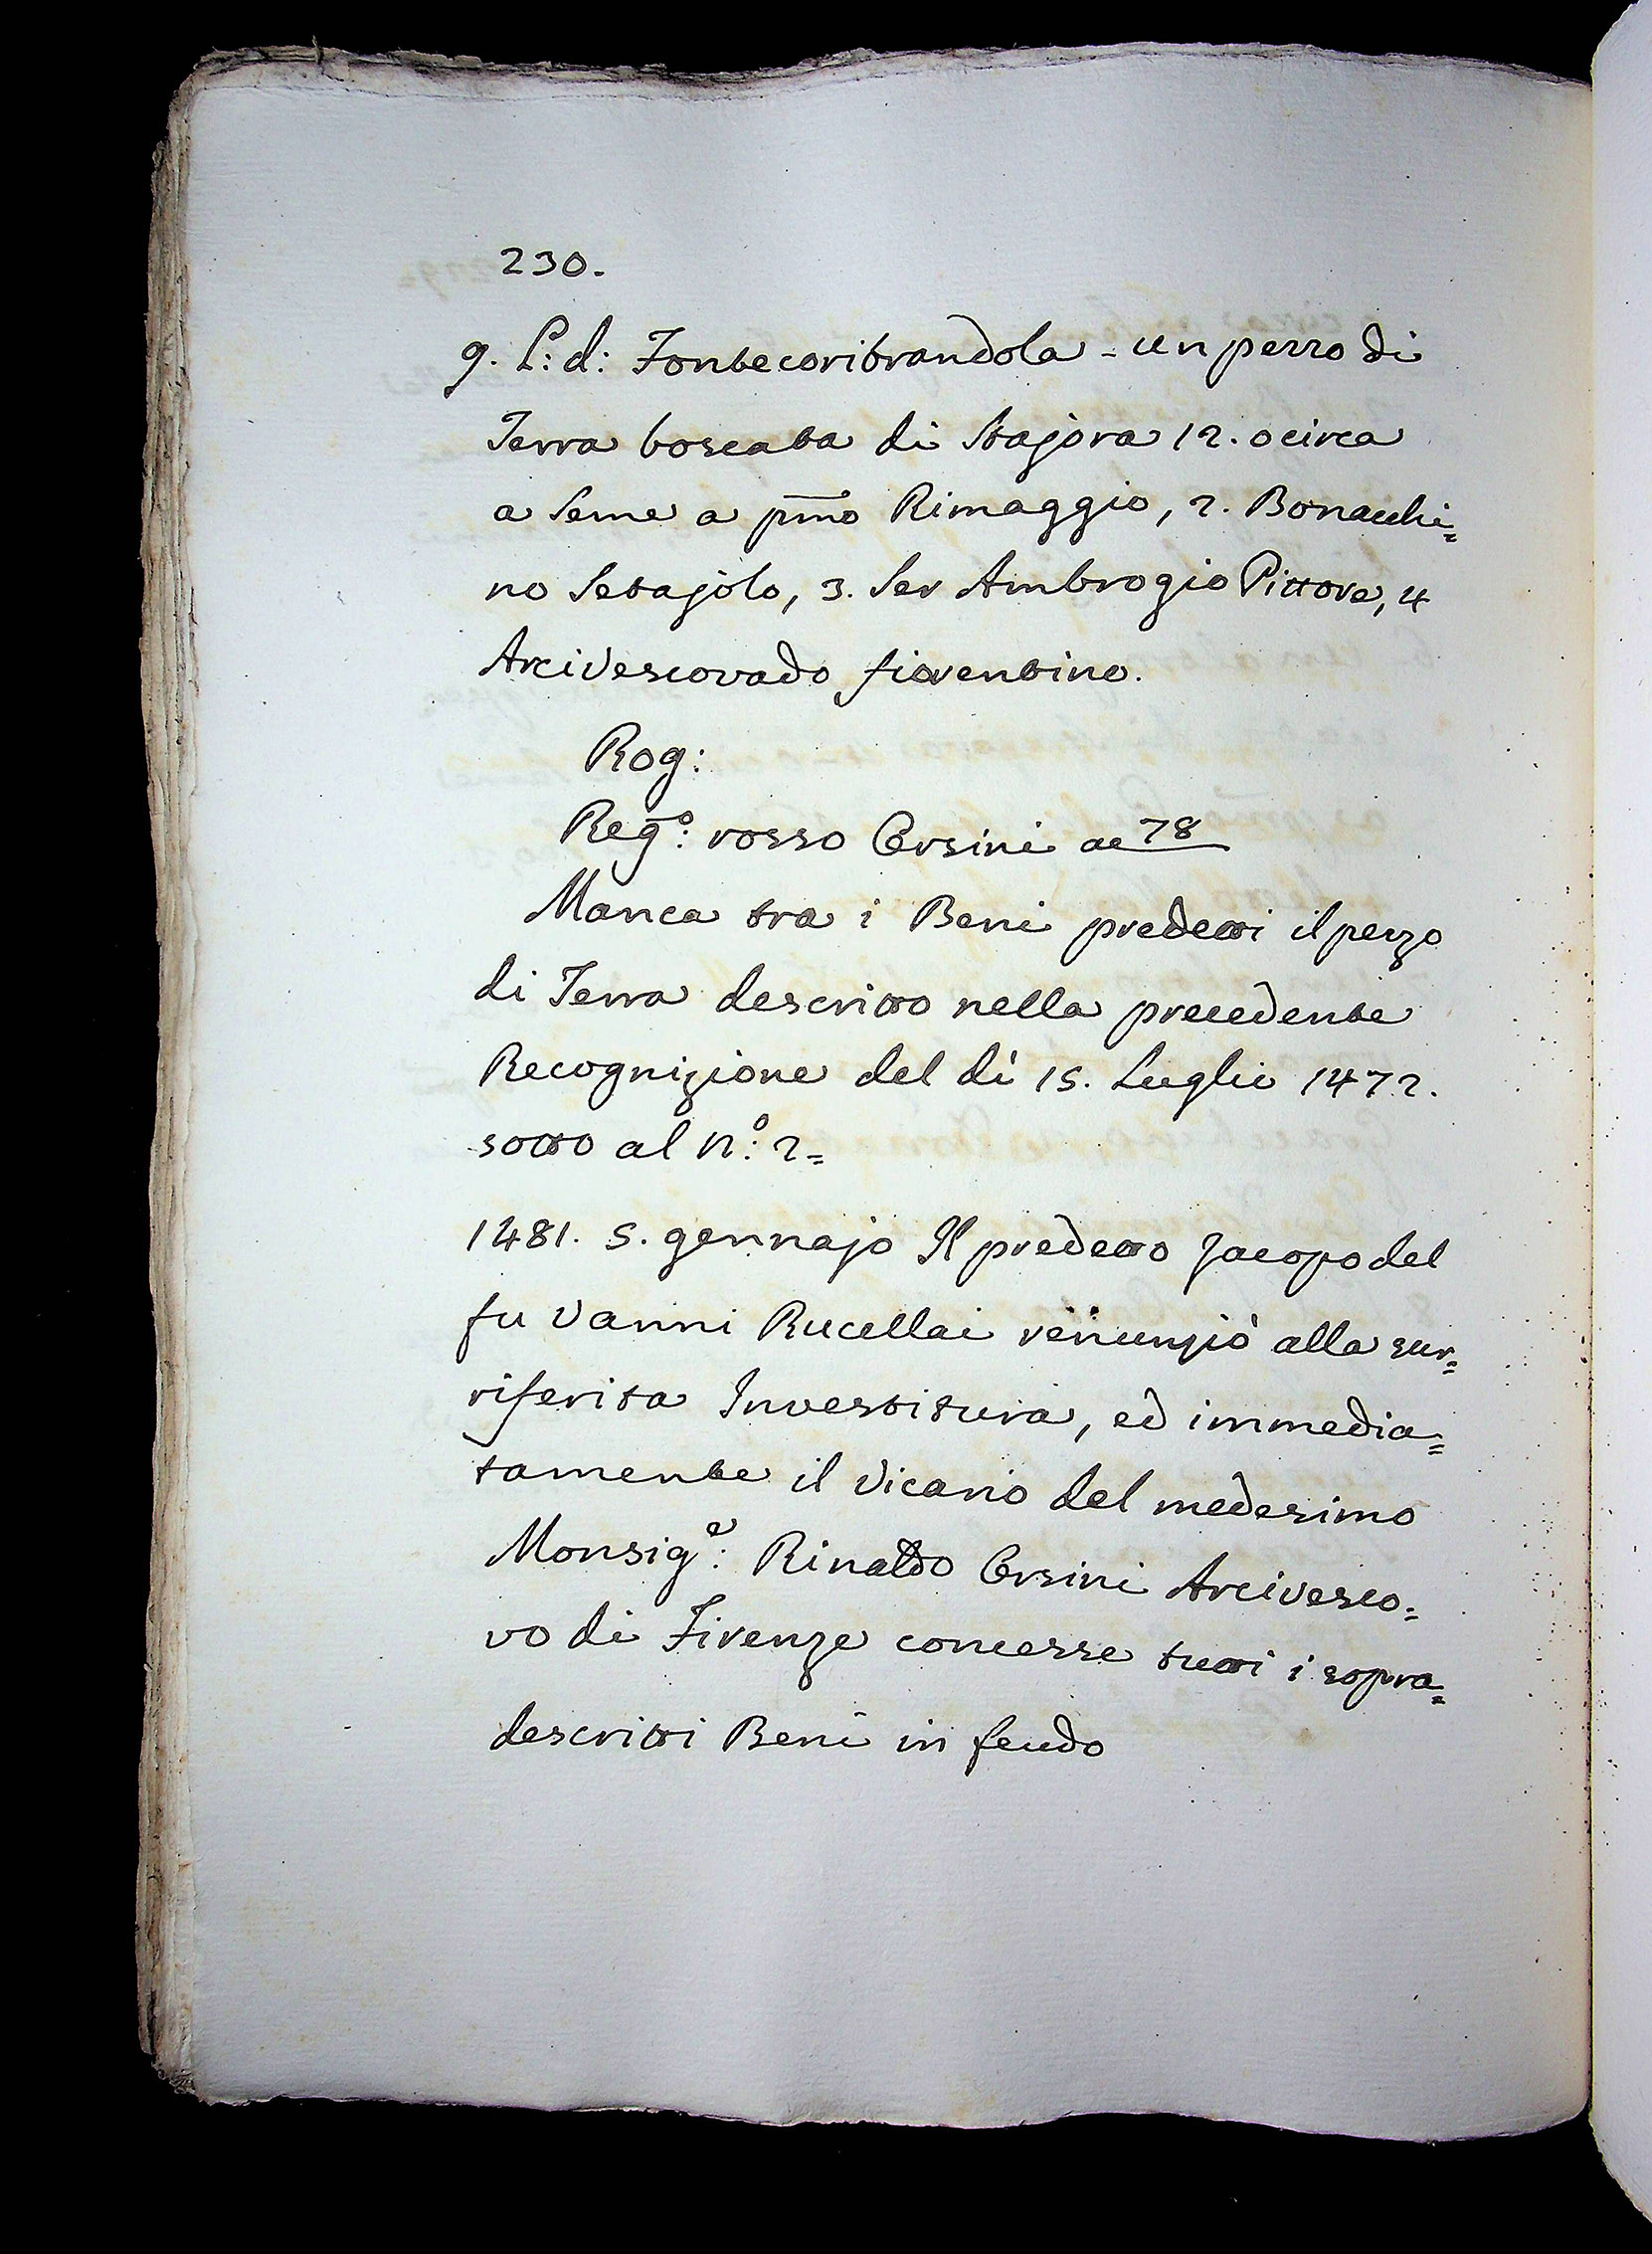 230.
9. L: d: Fontecoribrandola - un pezzo di
Terra boscata di Stajora 12. o circa
a Seme a pm̅o Rimaggio, 2. Bonacchi=
no Setajolo, 3. Ser Ambrogio Pittore, 4
Arcivescovado fiorentino.
Rog:
Reg.º: rosso Orsini ac 78
Manca tra i Beni predetti il pezzo
di Terra descritto nella precedente
Recognizione del dì 15. Luglio 1472.
sotto al n.º: 2=
1481. 5. gennajo Il predetto Jacopo del
fu Vanni Rucellai renunziò alla sur=
riferita Investitura, ed immedia=
tamente il Vicario del medesimo
Monsig.e: Rinaldo Orsini Arcivesco=
vo di Firenze concesse tutti i sopra=
descritti Beni in feudo